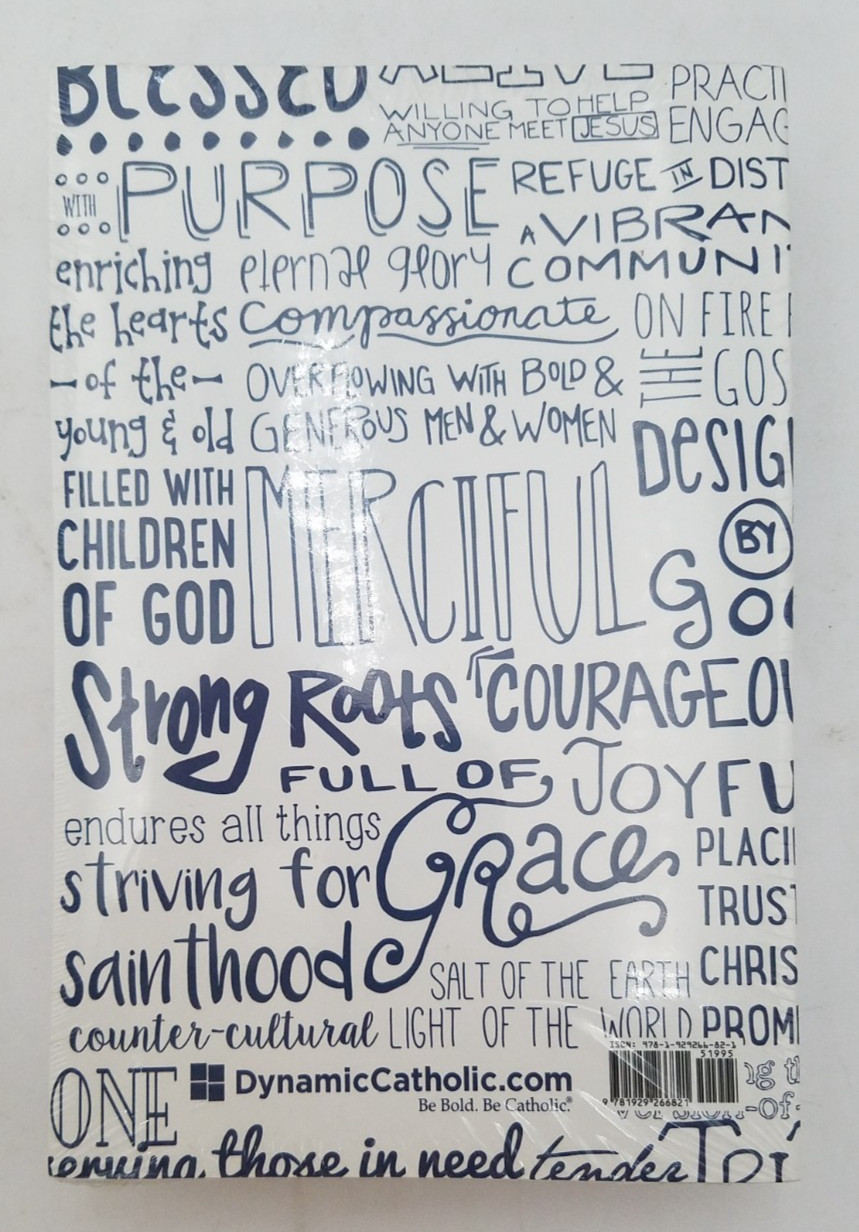 BLESSED
WILLING TO HELP
ANYONE MEET JESUS
PRACTI
ENGAG
WITH PURPOSE
REFUGE IN DIST
A VIBRAN
COMMUNI
enriching
the hearts
-of the-
young & old
eternal glory
Compassionate
ON FIRE F
THE GOS
OVERFLOWING WITH BOLD &
GENEROUS MEN & WOMEN
DESIG
BY
GO
FILLED WITH
CHILDREN
OF GOD
MERCIFUL
Strong Roots
COURAGEOU
FULL OF
Grace
JOYFU
endures all things
striving for
sainthood
PLACI
TRUST
CHRIS
PROMI
SALT OF THE EARTH
counter-cultural
LIGHT OF THE WORLD
ISBN: 978-1-929266-82-1
51995
9 781929 266821
ONE
DynamicCatholic.com
Be Bold. Be Catholic.®
ng th
version-of-
serving those in need
tender